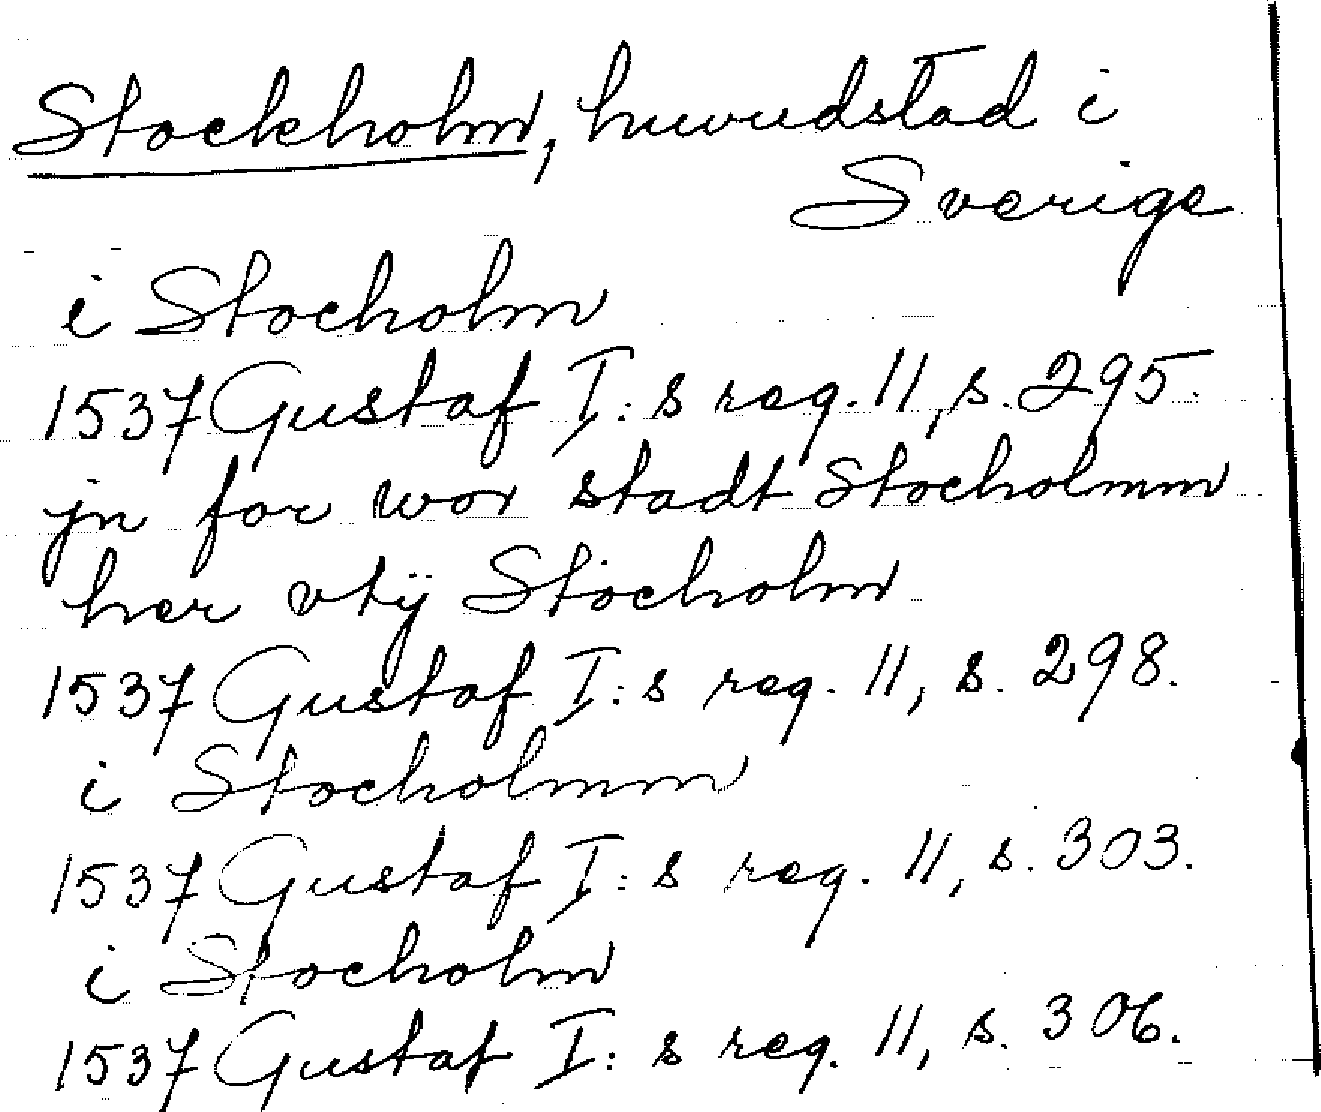 Stockholm, huvudstad i
Sverige
i Stocholm
1537 Gustaf I:s reg. 11, s. 295.
jn for wor stadt Stocholmm
her vtij Stocholm
1537 Gustaf I:s reg. 11, s. 298.
i Stocholmm
1537 Gustaf I:s reg. 11, s. 303.
i Stocholm
1537 Gustaf I:s reg. 11, s. 306.